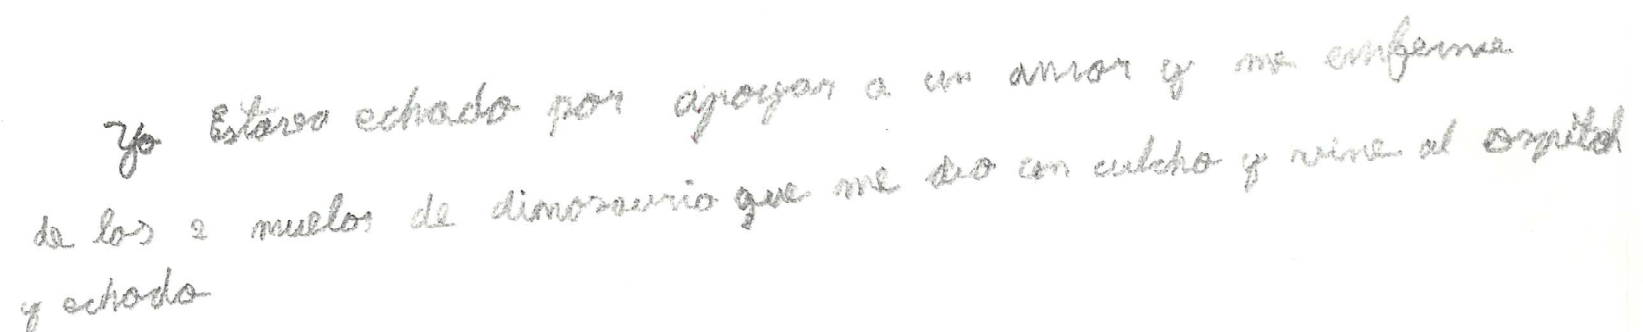 Yo Estaro echado por apoyar a un amor y me emferme
de las 2 muelas de dimosaurio que me dio un culcho y vine al ospital
y echado